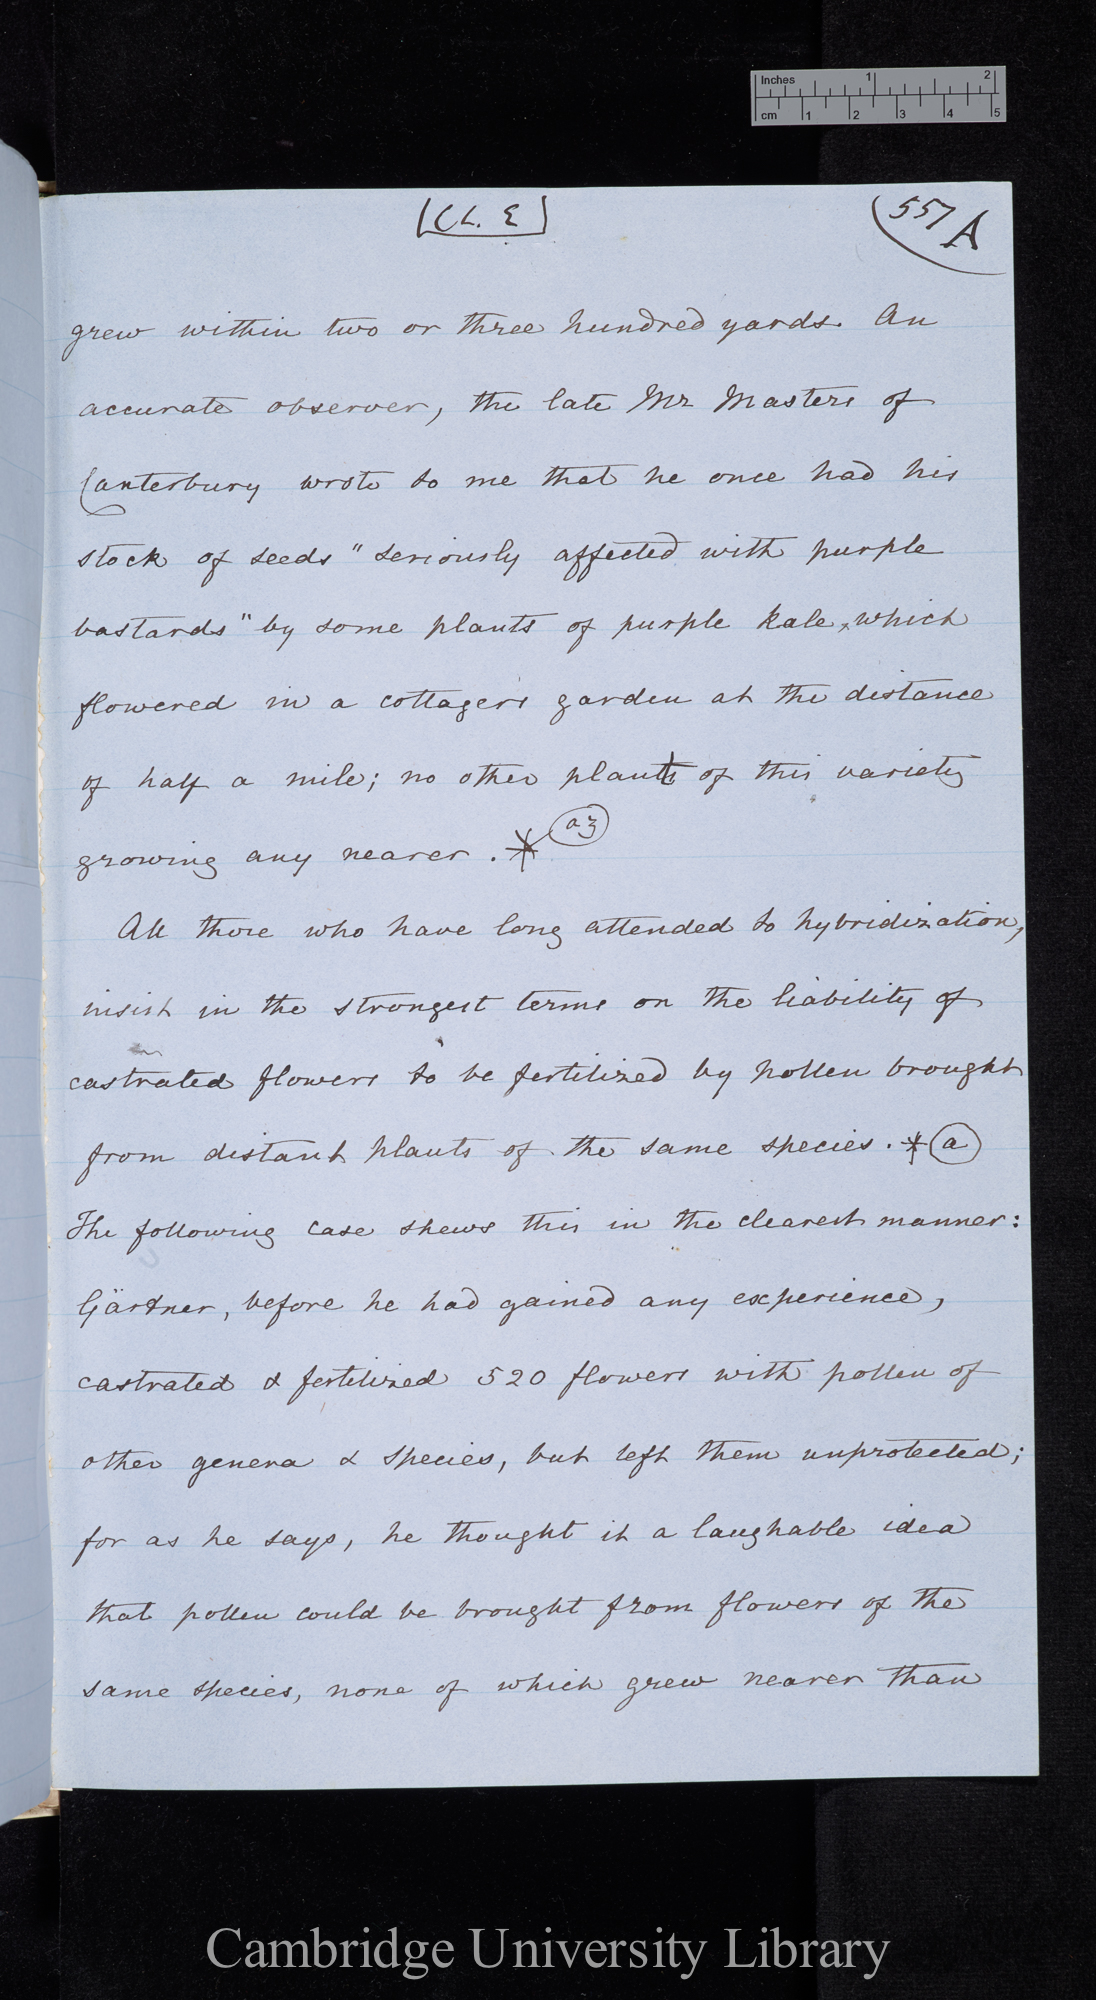 Inches 1 2
cm 1 2 3 4 5
[CL. E]
557 A
grew within two or three hundred yards. An
accurate observer, the late Mr Masters of
Canterbury wrote to me that he once had his
stock of seeds "seriously affected with purple
bastards" by some plants of purple kale, which
flowered in a cottager's garden at the distance
of half a mile; no other plant of this variety
growing any nearer. * a3
All those who have long attended to hybridization,
insist in the strongest terms on the liability of
castrated flowers to be fertilized by pollen brought
from distant plants of the same species. * a
The following case shews this in the clearest manner:
Gärtner, before he had gained any experience,
castrated & fertilized 520 flowers with pollen of
other genera & species, but left them unprotected;
for as he says, he thought it a laughable idea
that pollen could be brought from flowers of the
same species, none of which grew nearer than
Cambridge University Library